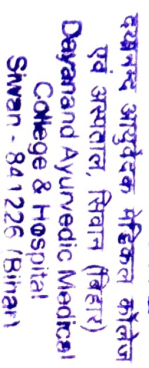 दयानन्द आयुर्वेदिक मेडिकल कॉलेज
एवं अस्पताल, सिवान (बिहार)
Dayanand Ayurvedic Medical
College & Hospital
Siwan - 841226 (Bihar)